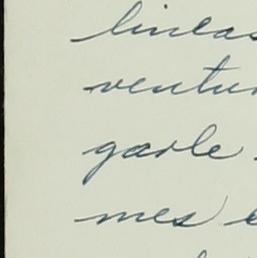 lineas
ventur
garle
mes e